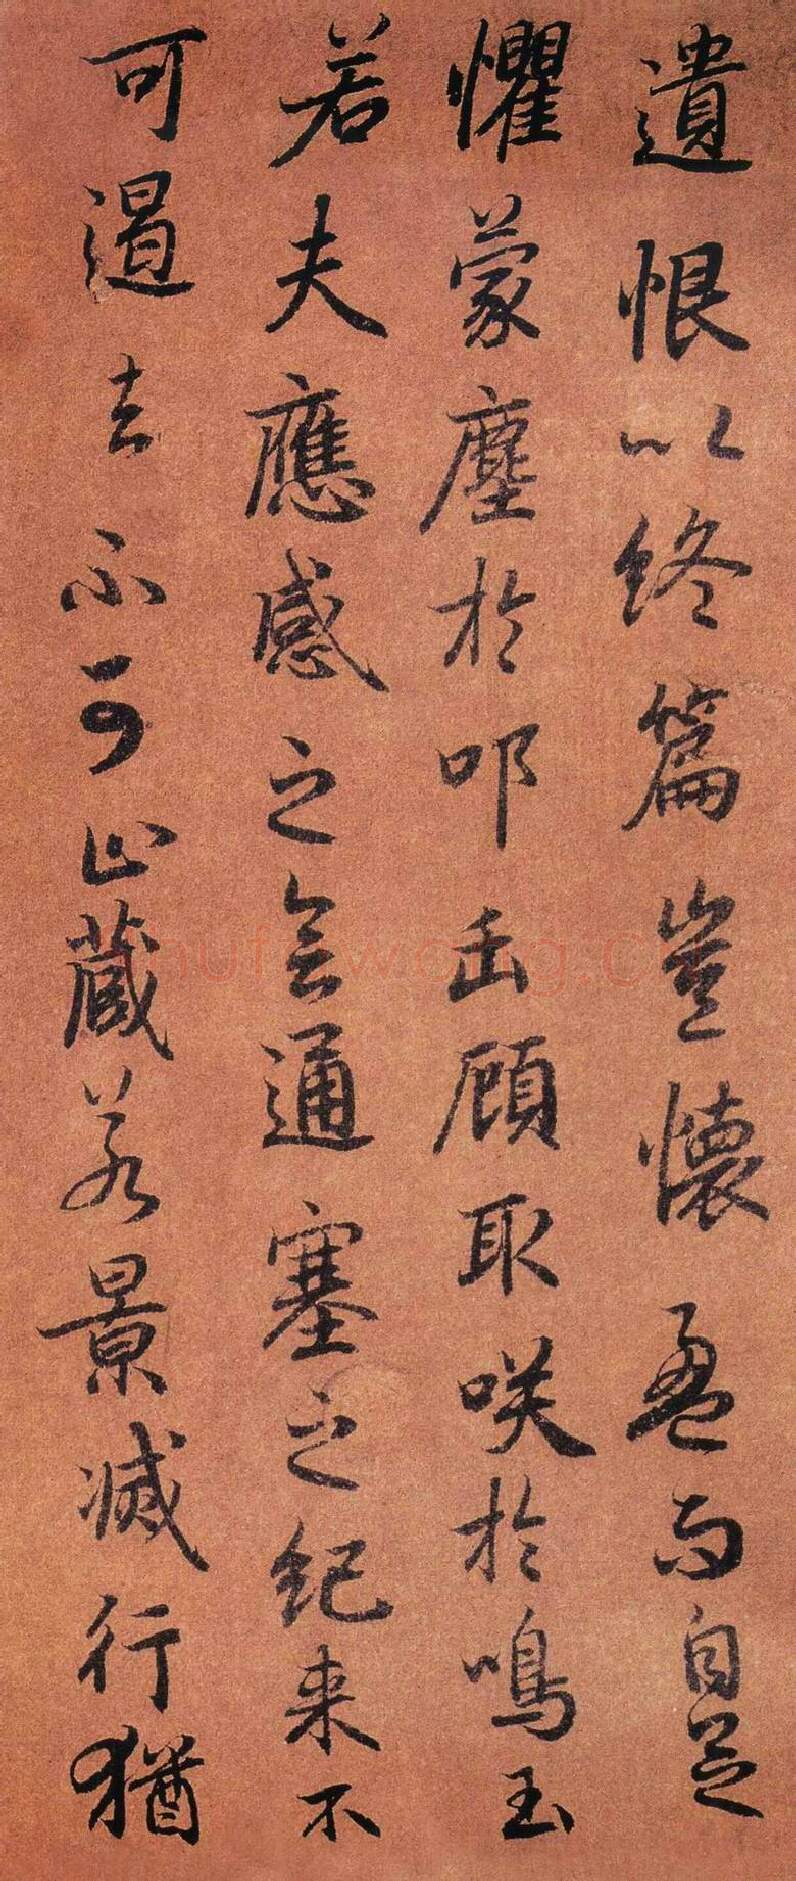 遺恨以終篇豈懷盈而自足
懼蒙塵於叩缶顧取咲於鳴玉
若夫應感之會通塞之紀来不
可遏去不可止蔵若景滅行猶